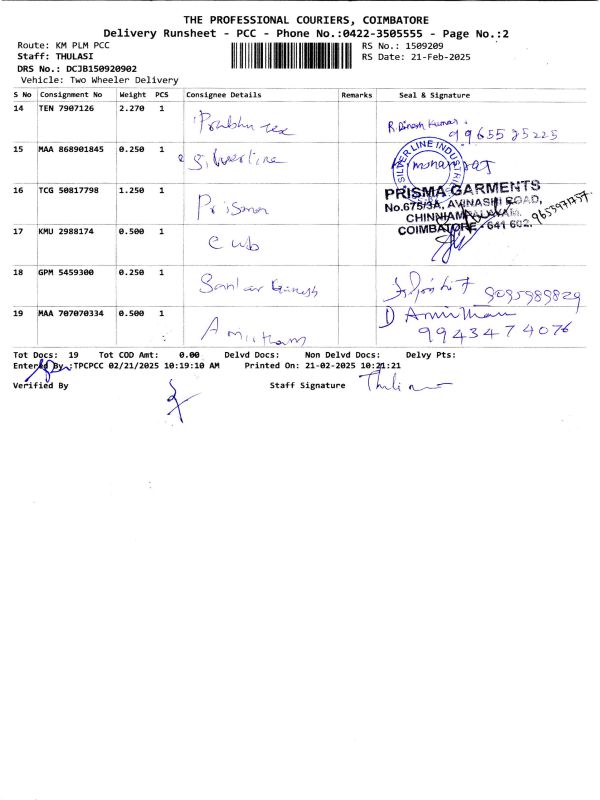 THE PROFESSIONAL COURIERS, COIMBATORE
Delivery Runsheet - PCC - Phone No.:0422-3505555 - Page No.:2
Route: KM PLM PCC RS No.: 1509209
Staff: THULASI RS Date: 21-Feb-2025
DRS No.: DCJB150920902
Vehicle: Two Wheeler Delivery
S No Consignment No Weight PCS Consignee Details Remarks Seal & Signature
14 TEN 7907126 2.270 1 Prabhu tex R. Dinesh Kumar
99655 25225
15 MAA 868901845 0.250 1 Silverline
SILVER LINE INDUSTRI
16 TCG 50817798 1.250 1 Prisma
PRISMA GARMENTS
No.675/3A, AVINASHI ROAD,
CHINNIAMPALAYAM,
COIMBATORE - 641 602.
17 KMU 2988174 0.500 1 Cub
18 GPM 5459300 0.250 1 Sankar Ganesh 9095989829
19 MAA 707070334 0.500 1 Amirtham D Amirtham
9943474076
Tot Docs: 19 Tot COD Amt: 0.00 Delvd Docs: Non Delvd Docs: Delvy Pts:
Entered By :TPCPCC 02/21/2025 10:19:10 AM Printed On: 21-02-2025 10:21:21
Verified By Staff Signature